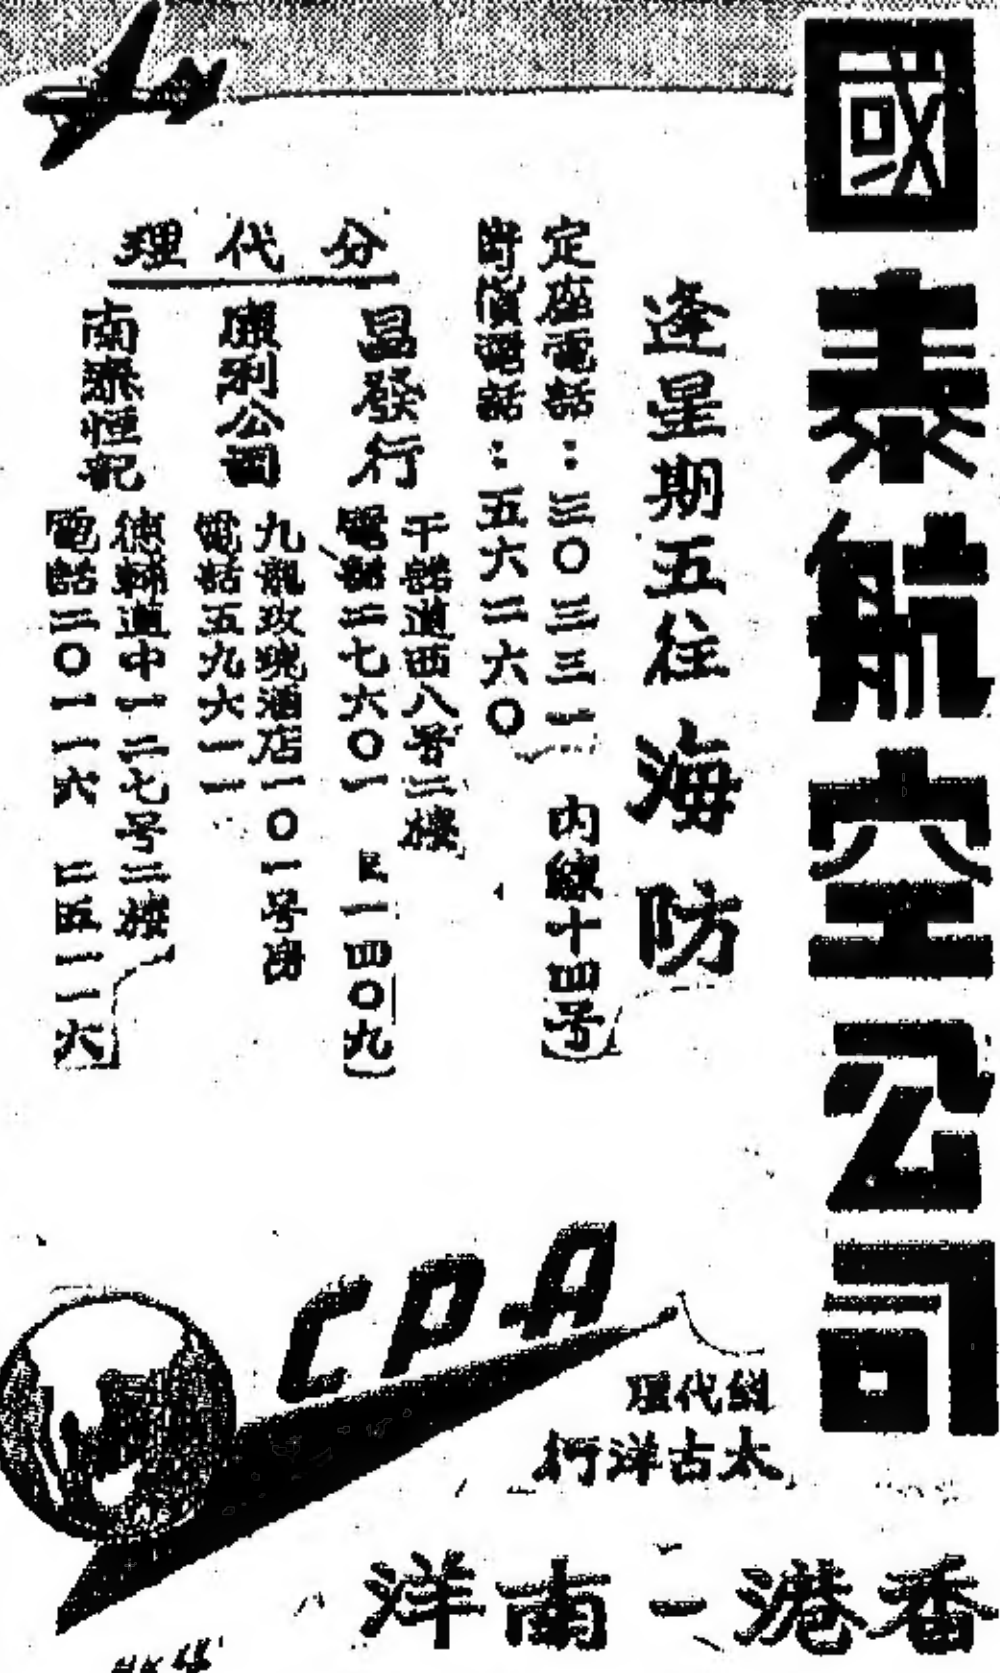 國泰航空公司
逢星期五往海防
定座電話：三〇三三一 內線十四号
電話：五六二六〇
分代理
昌發行
干諾道西八号三樓
電話二七六〇一 一四〇九
利公司
九龍玫瑰酒店一〇一号房
電話五九六一一
南恒記
德輔道中一二七号三樓
電話三〇一一六 二五一一六
CPA
總代理
太古洋行
香港－南洋